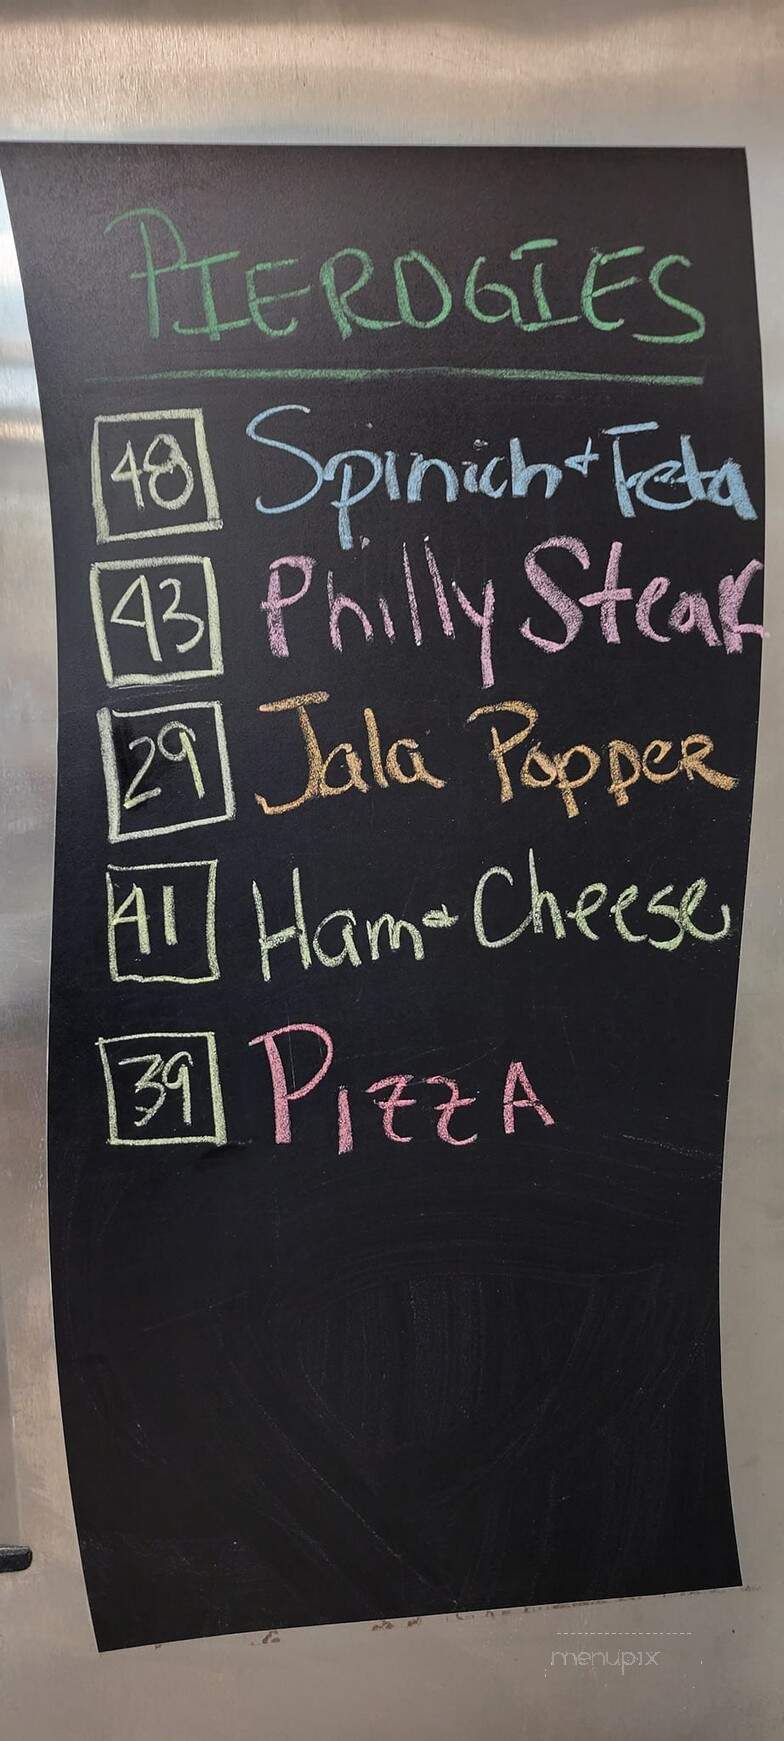 PIEROGIES
48 Spinich + Feta
43 Philly Steak
29 Jala Popper
41 Ham & Cheese
39 PIZZA
menupix